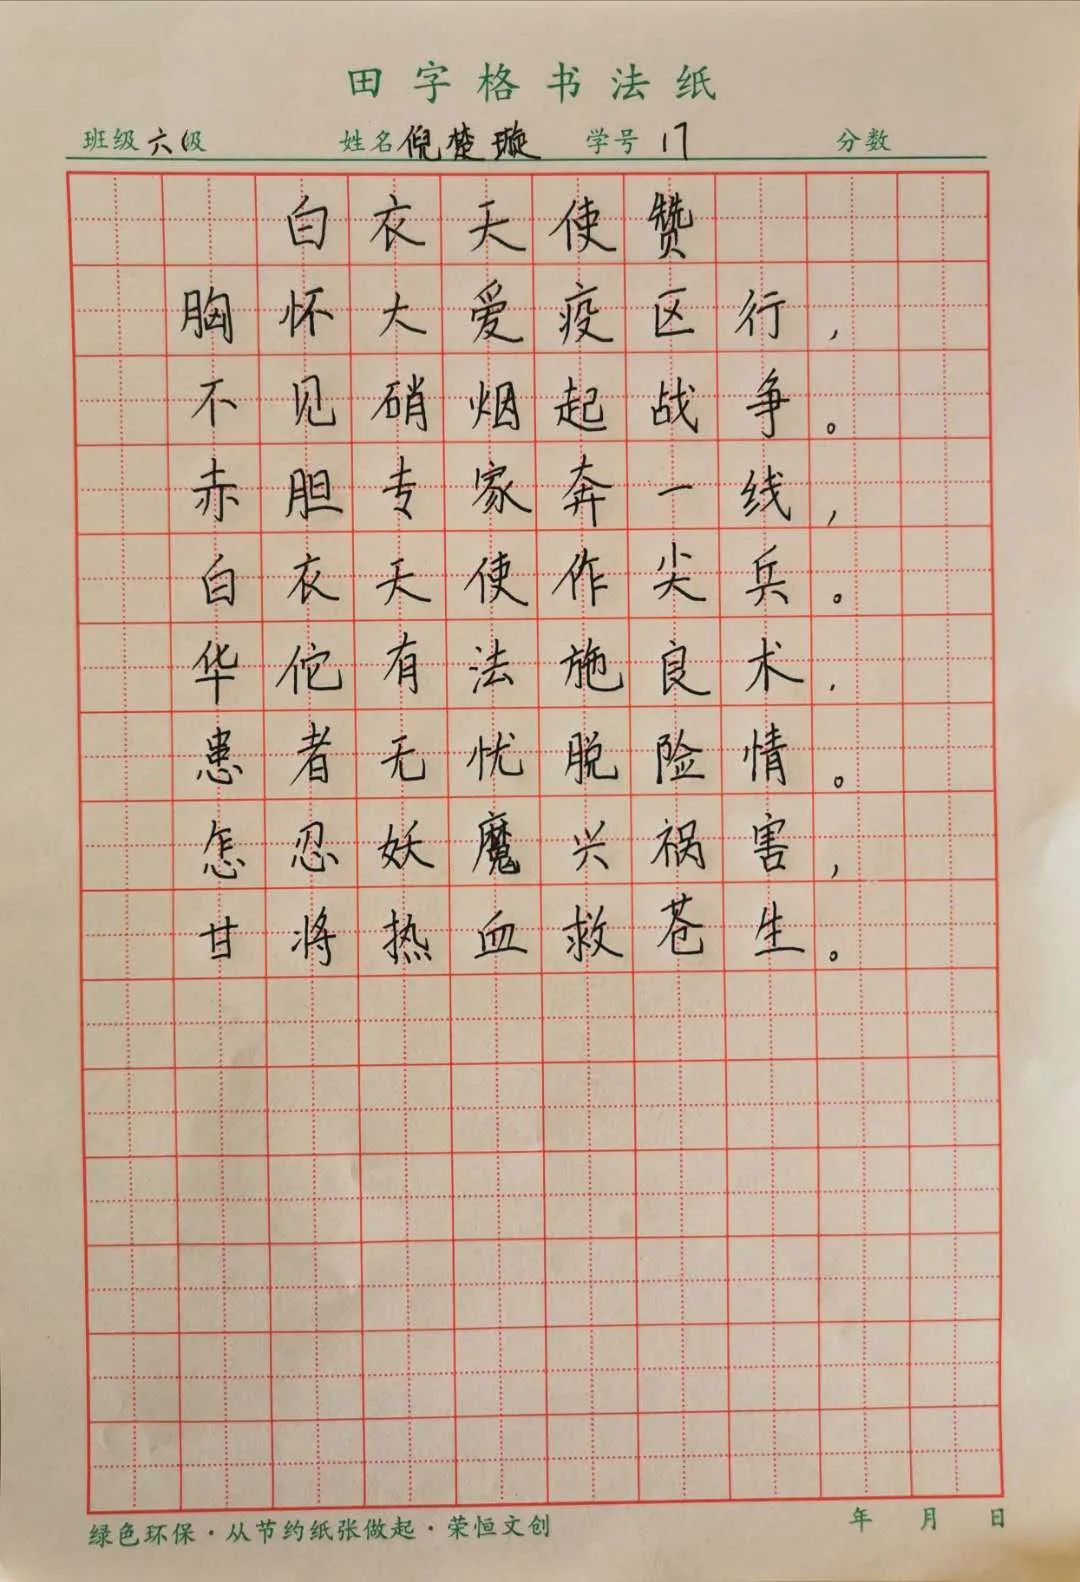 田字格书法纸
班级 六(级 姓名 倪楚璇 学号 17 分数
白衣天使赞
胸怀大爱疫区行,
不见硝烟起战争。
赤胆专家奔一线,
白衣天使作尖兵。
华佗有法施良术,
患者无忧脱险情。
怎忍妖魔兴祸害,
甘将热血救苍生。
绿色环保·从节约纸张做起·荣恒文创 年 月 日